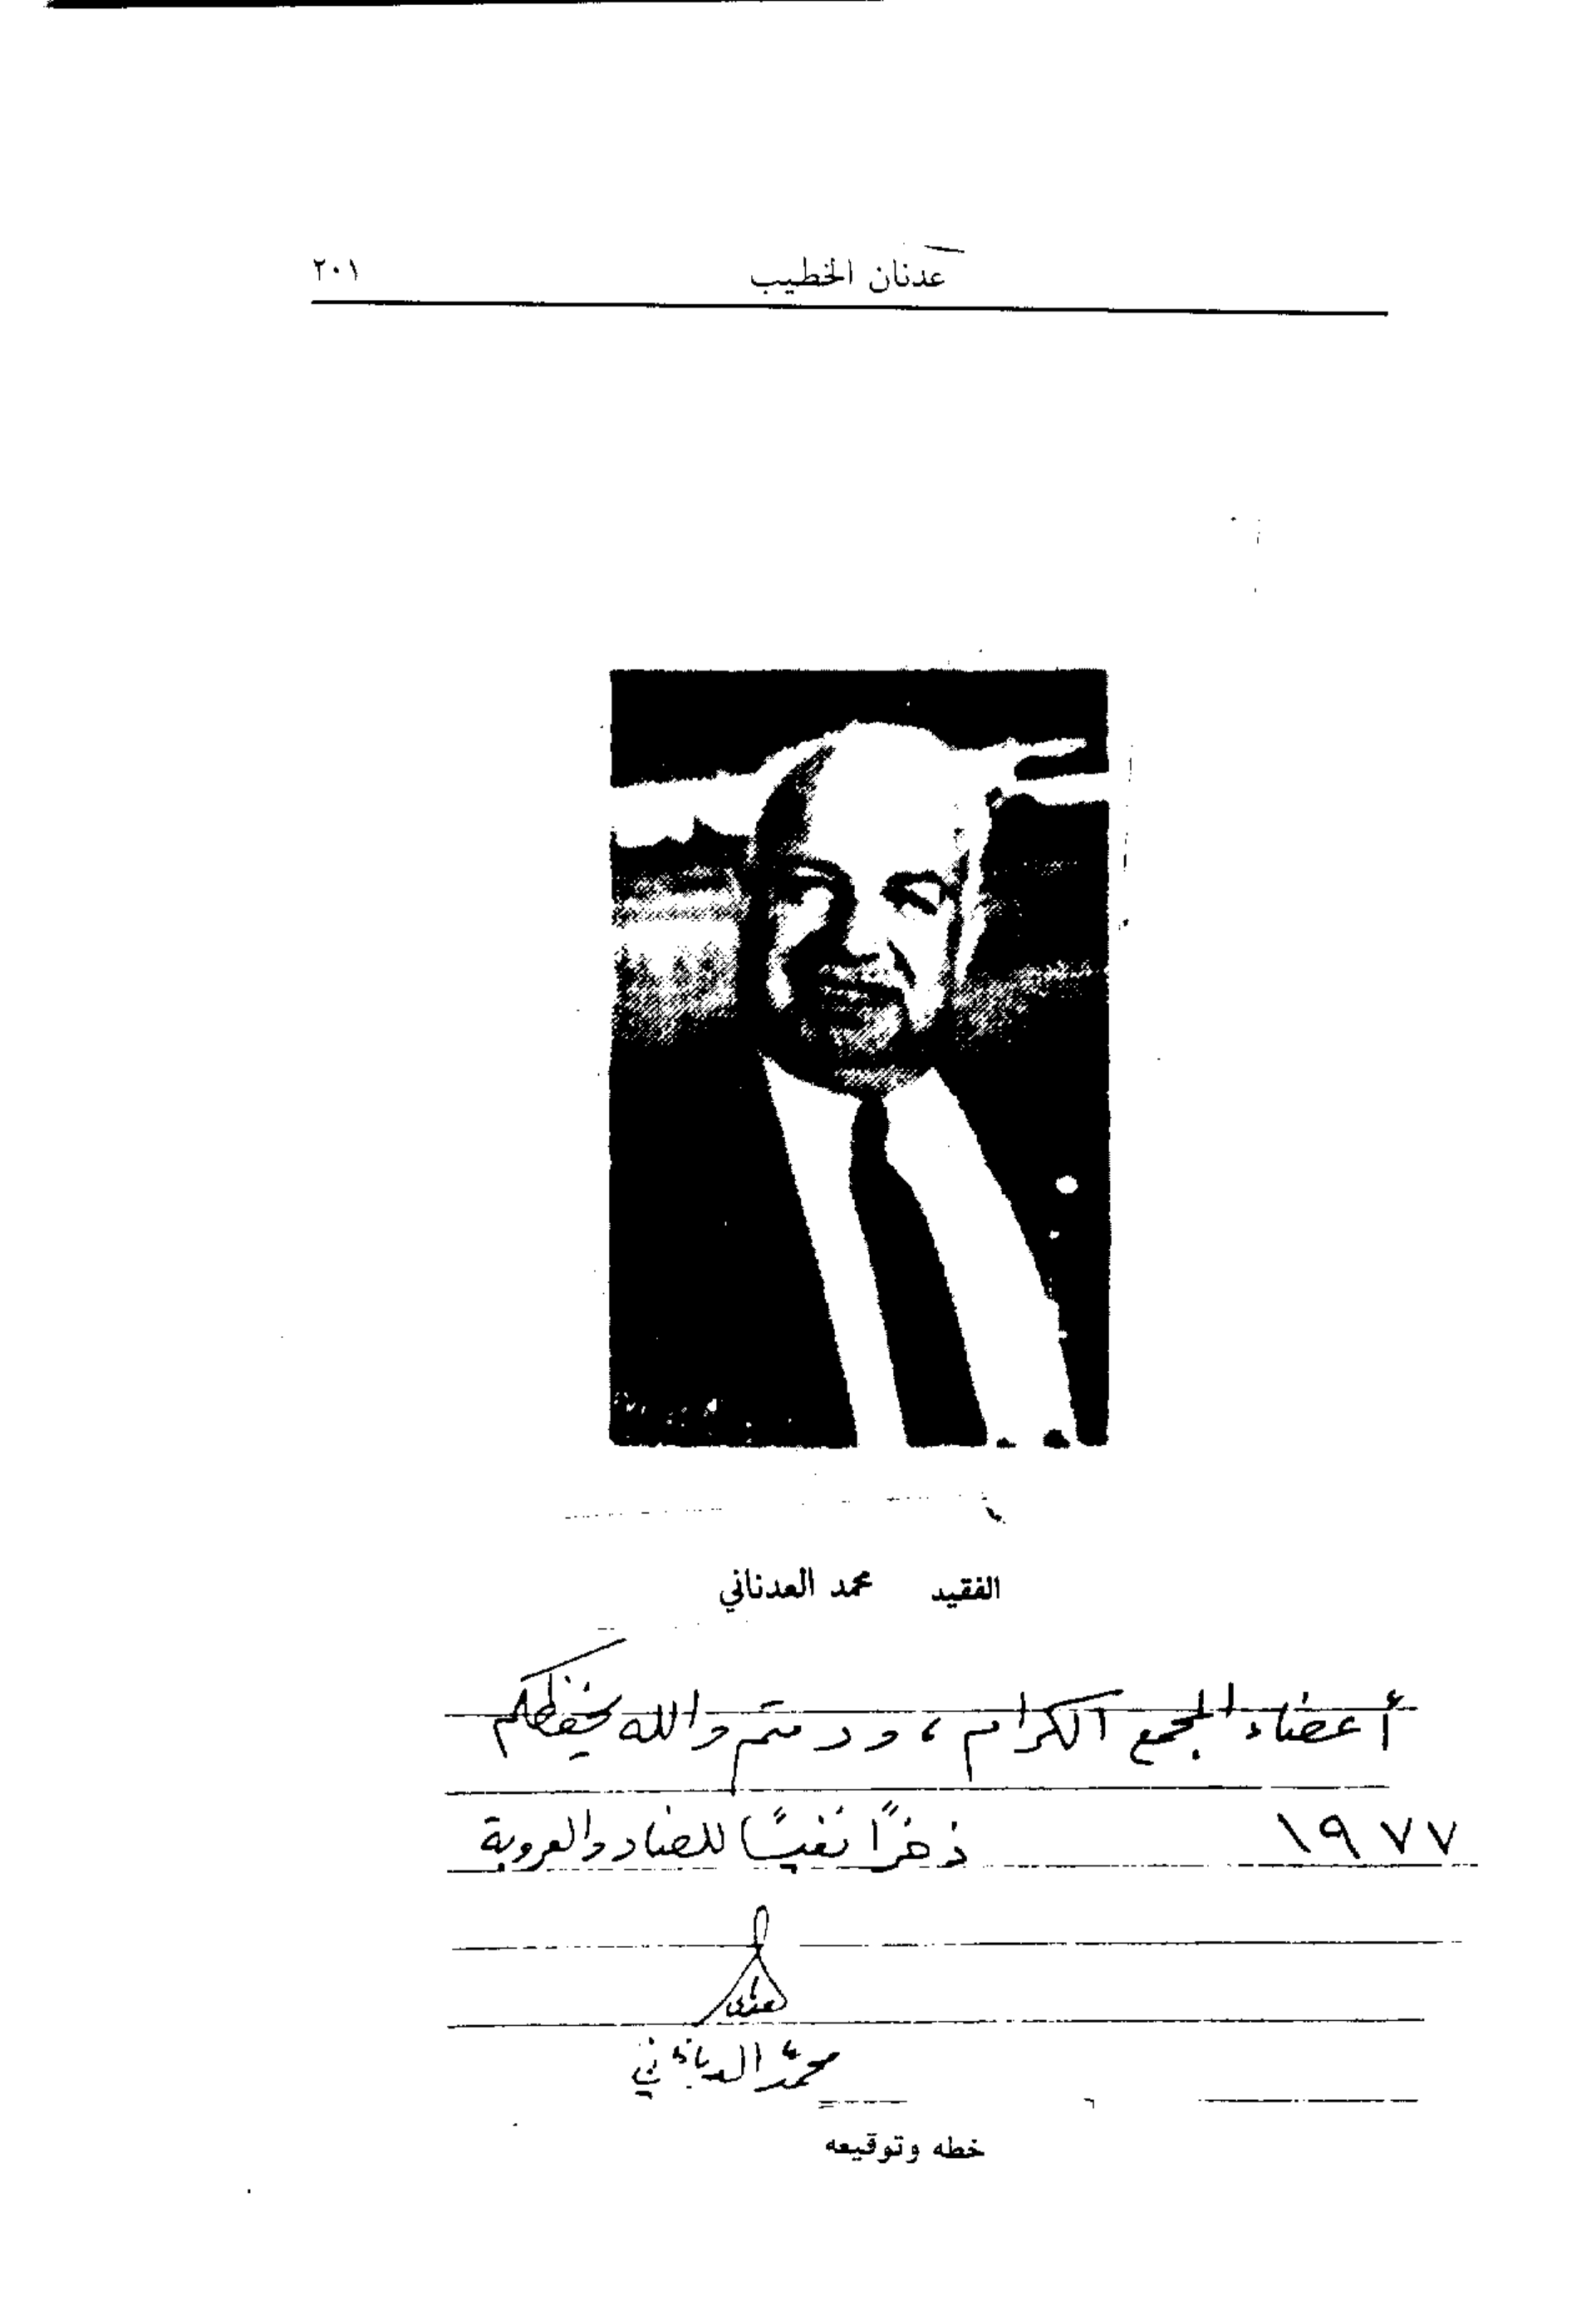 عدنان الخطيب ٢٠١
الفقيد محمد العدناني
أعضاء المجمع الكرام ، ودمتم والله يحفظكم
١٩٧٧ ذخرًا نفيسًا للضاد والعروبة
محمد العدناني
خطه وتوقيعه